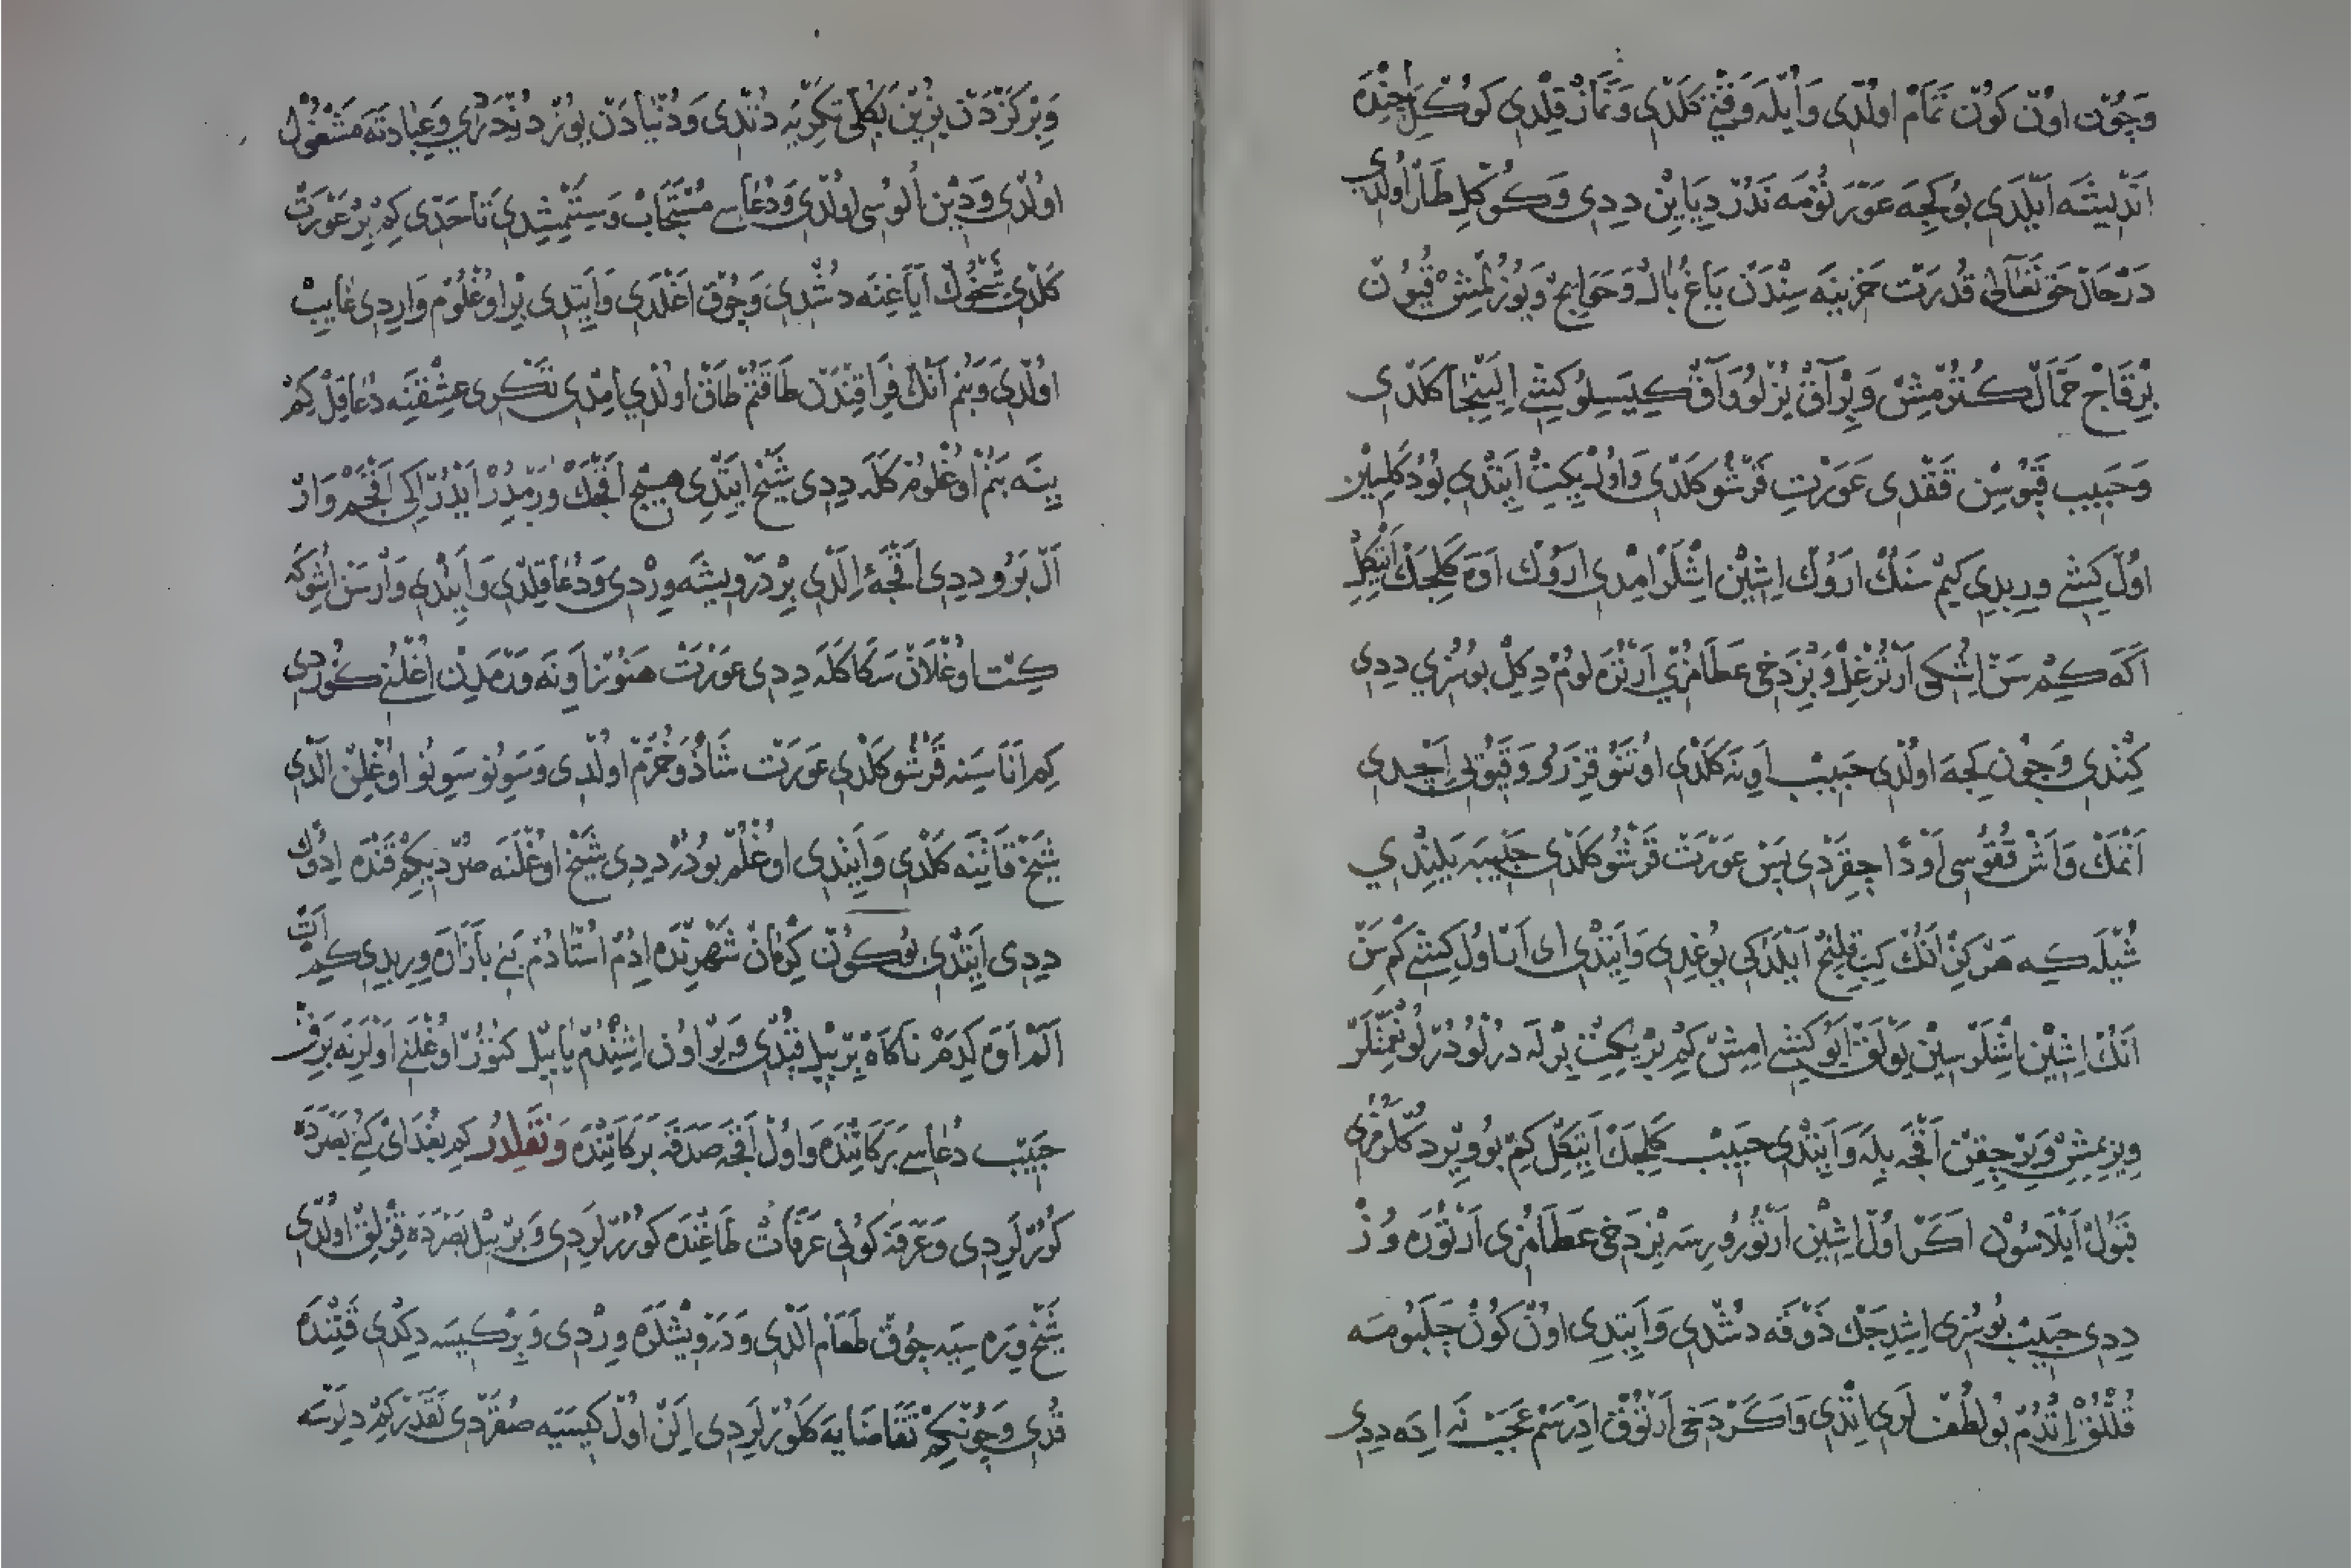 وَچُونْ اونْ كُونْ تَمَامْ اولْدِى وَاُيْلَه وَقْتِى كَلْدِى وَنَمَازْ قِلْدِى كُوكْلِ اِچِنْدَه
اَنْدِيشَه اَيْلَدِى بُو كِجَه عَوْرَتُومَه نَدُرْ دِيَايِنْ دِدِى وَكُوكْلِ طَارْ اُولْدِى
دَرْحَالْ حَقْ تَعَالٰى قُدْرَتْ خَزِينَه سِنْدَنْ يَاغْ بَالْ وَحَوَايِجْ وَيُوزُلْمِشْ قُيُونْ
بِرْقَاجْ حَمَّالْ كُتُرْمِشْ وَبِرْ آقْ يُزْلُو وَآقْ كِيَسِلُو كِشِى اِلَيِنْجَا كَلْدِى
وَحَبِيبْ قَپُوسِنْ قَقْدِى عَوْرَتِ قَرْشُو كَلْدِى وَاُولْ يِكِتْ اَيِتْدِى بُودُ كَلِيِنْ
اُولْ كِشِى وِرِبِدِى كِيمْ سَنُكْ اَرُوكْ اِشِينْ اِشْلَرْ اِمْدِى اَرُوكْ اَوَه كَلِجَكْ اَيِتْكِلْ
اَكَه كِيمْ سَنْ اِشُكِى اَرْتُرْغِلْ وَبِزْ دَخِى عَطَامُزِى اَرْتُرَه لُومْ دِكِلْ بُو سُزِى دِدِى
كِتْدِى وَچُونْ كِجَه اولْدِى حَبِيبْ اَوِنَه كَلْدِى اوتَنُو قِزَرُو وَقَپُويِى اَچْدِى
اَتْمَكْ وَاَشْ قُقُوسِى اَوْدَا چِقَرْدِى پَسْ عَوْرَتْ قَرْشُو كَلْدِى حَبِيبَه يَلِنْدِى
شُيْلَه كِه هَرْ كِزْ اَنُكْ كِبِى قِلِنْجْ اَيْلَمَدِكِى يُوغِدِى وَاَيِتْدِى اى اَتَا اُولْ كِشِى كِمْ سَنْ
اَنُكْ اِشِينْ اِشْلَرْسِينْ يَوْلَقْ اَيُو كِشِى اِمِشْ كِمْ بِرْ يِكِتْ بِرْلَه دُرْلُو دُرْلُو نِعْمَتْلَرْ
وِيْرِمِشْ وَبِرْ چِقِنْ اَقْچَه بِلَه وَاَيِتْدِى حَبِيبْ كَلِجَكْ اَيِتْكِلْ كِمْ بُو وِيرِدُكْلَرُمِزِى
قَبُولْ اَيْلَاسُونْ اَكَرْ اُولْ اِشِينْ اَرْتُورُورِسَه بِزْ دَخِى عَطَامُزِى اَرْتُورَه وُزْ
دِدِى حَبِيبْ بُو سُزِى اِشِدِجَكْ ذَوْقَه دُشْدِى وَاَيِتْدِى اونْ كُونْ چَلَبُومَه
قُلْلُقْ اِتْدُمْ بُو لُطُفْ لَرِى اِتْدِى وَاَكَرْ دَخِى اَرْتُوقْ اِدَرْسَمْ عَجَبْ نَه اِدَه دِدِى
وَبِرْ كَزْدَنْ يُزِينْ بِكُلِّى تَكْرِيَه دُتْدِى وَدُنْيَادَنْ يُوزْ دُنْدَرْدِى وَعِبَادَتَه مَشْغُولْ
اولْدِى وَدِينْ اُلُوسِى اولْدِى وَدُعَاسِى مُسْتَجَابْ وَسِتَمِشِدِى تَا حَدِّى كِمْ بِرْ عَوْرَتْ
كَلْدِى شَيْخُوكْ اَيَاغِنَه دُشْدِى وَچُوقْ اَغْلَدِى وَاَيِتْدِى بِرْ اوغْلُومْ وَارِدِى غَايِبْ
اولْدِى وَبَنُمْ اَنُكْ فِرَاقِنْدَنْ طَاقَتُمْ طَاقْ اولْدِى اِمْدِى تَكْرِى عِشْقِنَه دُعَا قِلْ كِمْ
يِنَه بَنُمْ اوغْلُومْ كَلَه دِدِى شَيْخْ اَيِتْدِى هِيچْ اَقْچَكْ وَرْمِدُرْ اَيْدُرْ اِكِى اَقْچَمْ وَارْ
اَلْ بَرُو دِدِى اَقْچَه ءِ اَلْدِى بِرْ دَرْوِيشَه وِرْدِى وَدُعَا قِلْدِى وَاَيِتْدِى وَارْسَنْ اُشُوكَه
كِتْ اوغْلَانْ سَكَا كَلَه دِدِى عَوْرَتْ هَنُوزْ اَوِنَه وَرْمَدِنْ اُغْلَنِى كُورْدِى
كِمْ اَنَاسِنَه قَرْشُو كَلْدِى عَوْرَتْ شَاذْ وَخُرَّمْ اولْدِى وَسَوِنُو سَوِنُو اوغْلِنْ اَلْدِى
شَيْخْ قَاتِنَه كَلْدِى وَاَيِتْدِى اوغْلُمْ بُودُرْ دِدِى شَيْخْ اوغْلَنَه صُرْدِيكِمْ قَنْدَه اِدُوكْ
دِدِى اَيِتْدِى بُوكُونْ كِرْمَانْ شَهْرِنْدَه اِدُمْ اُسْتَادُمْ بَنِى بَازَارَه وِرِبِدِى كِمْ اَتْ
اَلَمْ اَوَه كِدَمْ نَاكَاهْ بِرْ يِيلْ قُپْدِى وَبِرْ اوُنْ اِشِتْدُمْ يَا يِيلْ كُتُورْ اوغْلَنِى اَوْلَرِنَه بَرِقْ
حَبِيبْ دُعَاسِى بَرَكَاتِنْدَه وَاُولْ اَقْچَه صَدَقَه بَرَكَاتِنْدَه وَنَقِلْدُرْ كِمْ بَغْدَاىْ كُنِى بَصْرَدَه
كُورُرْلَرِدِى وَعَرَفَه كُونِى عَرَفَاتْ طَاغِنْدَه كُورُرْلَرِدِى وَبِرْ يِيلْ بَصْرَدَه قِزْلِقْ اولْدِى
شَيْخْ وِرَه سِيَه چُوقْ طَعَامْ اَلْدِى وَدَرْوِيشْلَرَه وِرْدِى وَبِرْ كِيسَه دِكْدِى قَتِنْدَه
قُدِى وَچُونْكِمْ تَقَاضَايَه كَلُورْلَرِدِى اَلِنْ اُولْ كِيسَيَه صُقَرْدِى نَقَدَرْ كِمْ دِلَرْسَه